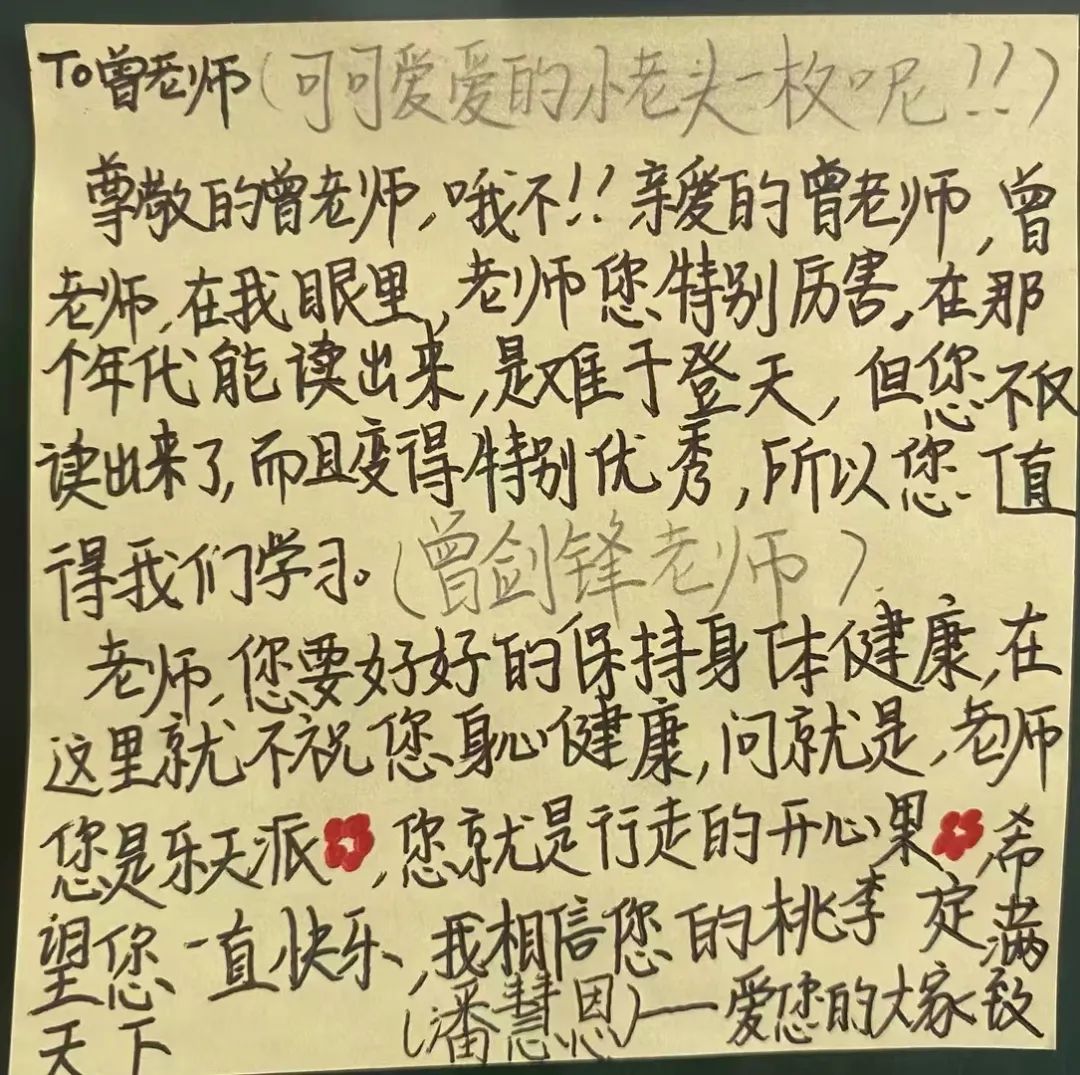 To曾老师(可可爱爱的小老头一枚呢!!)
尊敬的曾老师,哦不!!亲爱的曾老师,曾
老师,在我眼里,老师您特别厉害,在那
个年代能读出来,是难于登天,但您不仅
读出来了,而且变得特别优秀,所以您值
得我们学习。(曾剑锋老师)
老师,您要好好的保持身体健康,在
这里就不祝您身心健康,问就是,老师
您是乐天派,您就是行走的开心果,希
望您一直快乐,我相信您的桃李定满
天下 (潘慧恩)——爱您的大家致